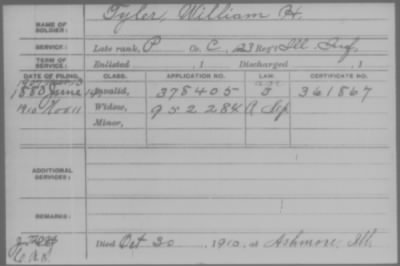 NAME OF SOLDIER: Tyler, William H.
SERVICE: Late rank, P Co. C, 23 Reg't Ill Inf.
TERM OF SERVICE: Enlisted , 1 Discharged , 1
DATE OF FILING. CLASS. APPLICATION NO. LAW. CERTIFICATE NO.
1880 June Invalid, 378405 3 361867
1910 Nov 11 Widow, 952284 A Sep
Minor,
ADDITIONAL SERVICES:
REMARKS:
Died Oct 30 1910, at Ashmore, Ill.